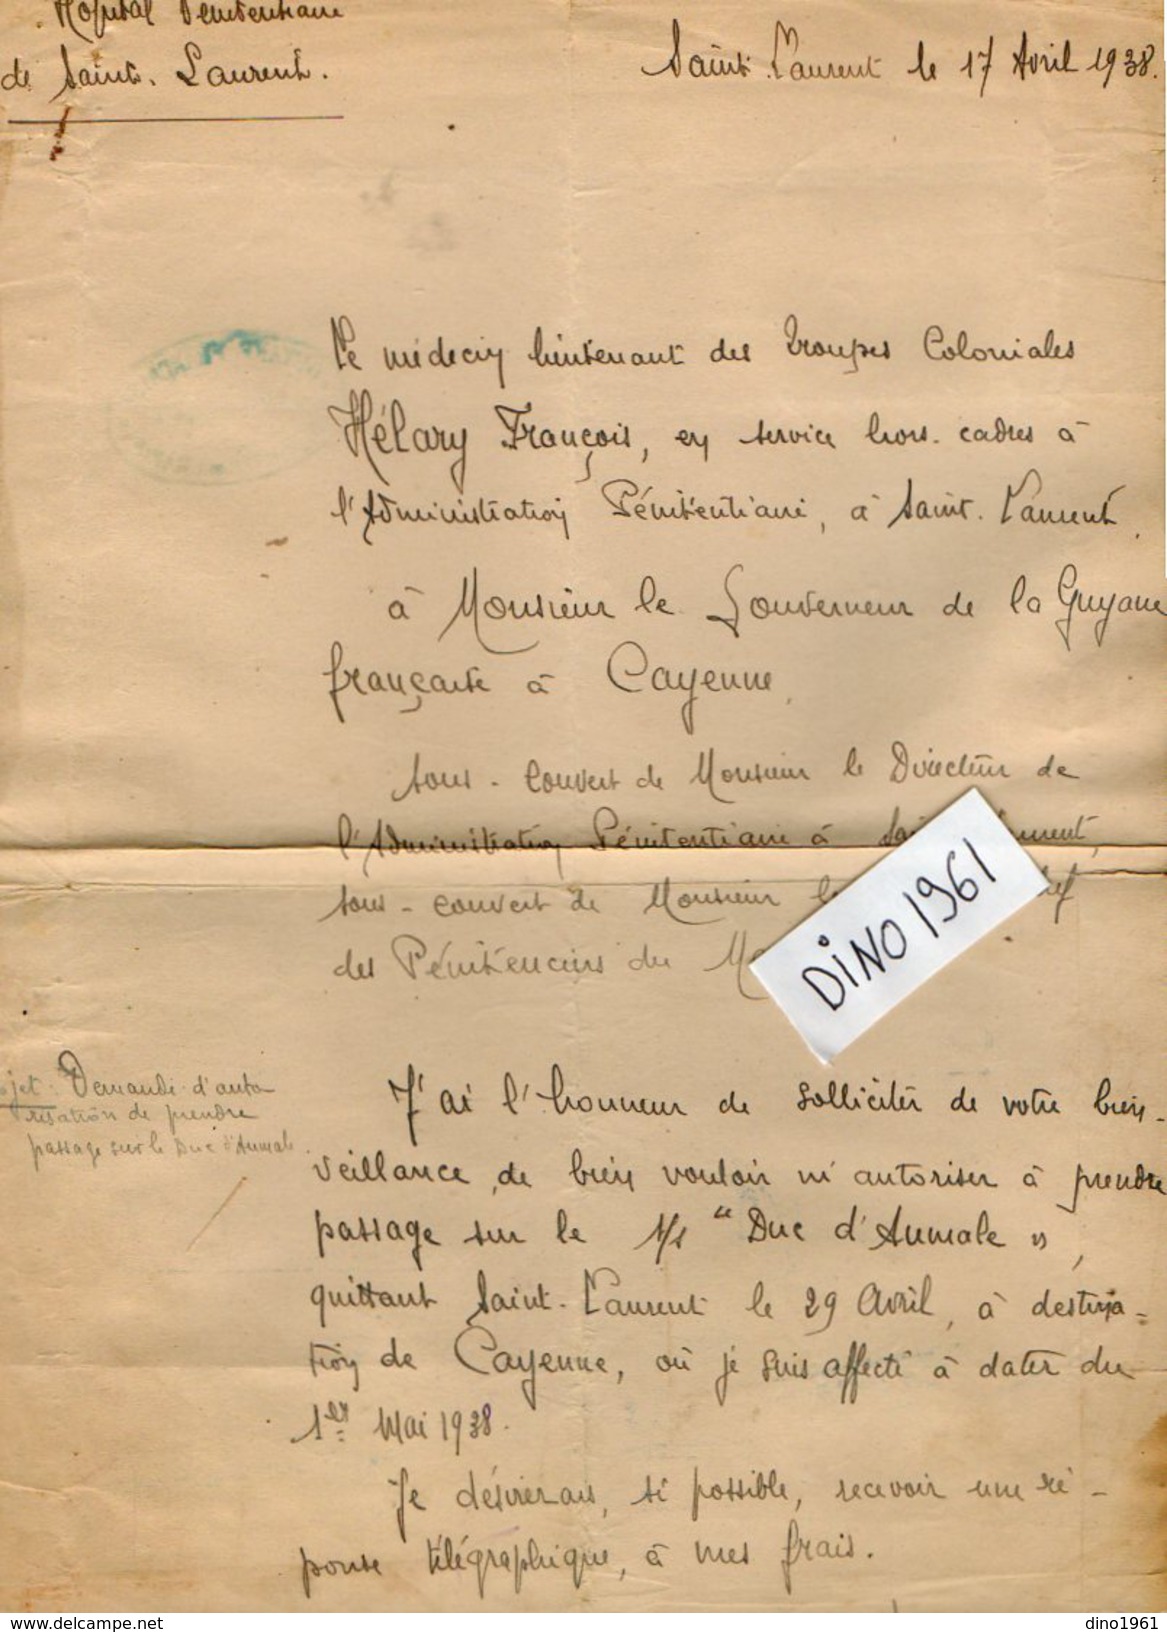 Hôpital Pénitentiaire
de Saint-Laurent.
Saint-Laurent le 17 Avril 1938.
Le médecin lieutenant des Troupes Coloniales
Hélary François, en service hors-cadres à
l'Administration Pénitentiaire, à Saint-Laurent.
à Monsieur le Gouverneur de la Guyane
française à Cayenne.
sous-couvert de Monsieur le Directeur de
l'Administration Pénitentiaire à Sai urent,
sous-couvert de Monsieur le ef
des Pénitenciers du Ma
DINO 1961
jet: Demande d'auto
risation de prendre
passage sur le Duc d'Aumale
J'ai l'honneur de solliciter de votre bien-
veillance, de bien vouloir m'autoriser à prendre
passage sur le S/S "Duc d'Aumale",
quittant Saint-Laurent le 29 Avril, à destina-
tion de Cayenne, où je suis affecté à dater du
1er Mai 1938.
Je désirerais, si possible, recevoir une ré-
ponse télégraphique, à mes frais.
www.delcampe.net
dino1961